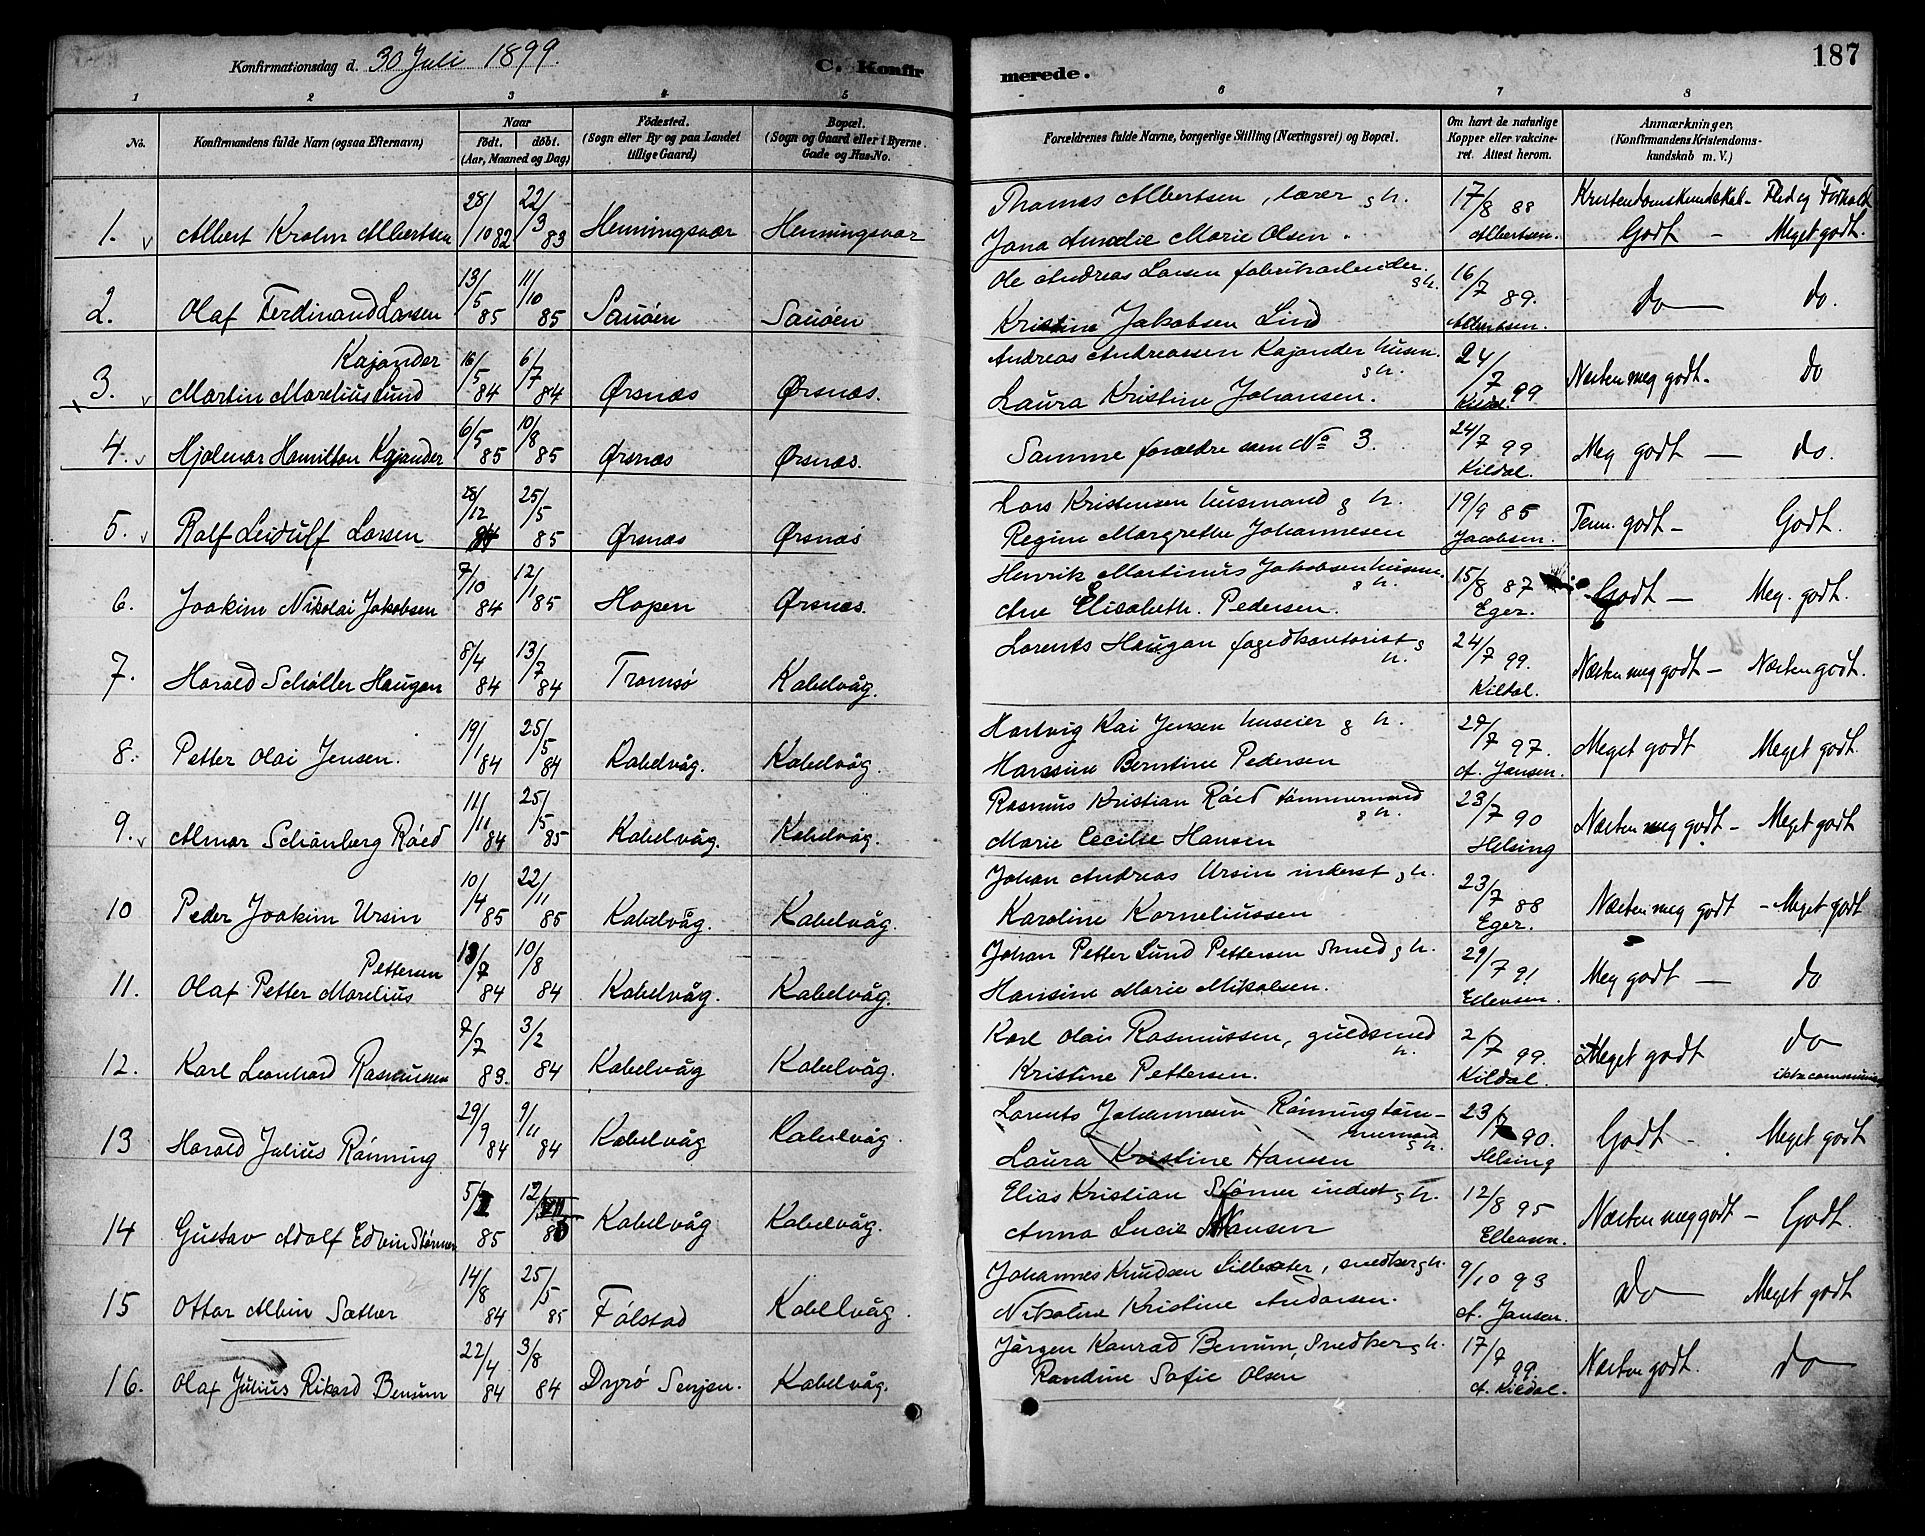 Konfirmationsdag d. 30 Juli 1899. C. Konfirmerede. 187
1 2 3 4 5 6 7 8
No. Konfirmandens fulde Navn (ogsaa Efternavn) Naar født. døbt. (Aar, Maaned og Dag) Fødested. (Sogn eller By og paa Landet tillige Gaard) Bopæl. (Sogn og Gaard eller i Byerne Gade og Hus-No. Forældrenes fulde Navne, borgerlige Stilling (Næringsvei) og Bopæl. Om havt de naturlige Kopper eller vakcineret. Attest herom. Anmærkninger. (Konfirmandens Kristendomskundskab m. V.)
1. Albert Krohn Albertsen 28/10 82 22/3 83 Henningsvær Henningsvær Thomas Albertsen, lærer g h. 17/8 88 Kristendomskundskab - Flid og Forhold
Jana Amalie Marie Olsen. Albertsen. Godt - Meget godt.
2. Olaf Ferdinand Larsen 13/5 85 11/10 85 Sauøen Sauøen Ole Andreas Larsen fabrikarbeider g h. 16/7 89. do do.
Kristine Jakobsen Lind Albertsen.
3. Martin Marelius Lund Kajander 16/5 84 6/7 84 Ørsnæs Ørsnæs. Andreas Andreassen Kajander husm. g h. 24/7 99 Næsten meg godt. do
Laura Kristine Johansen. Kildal.
4. Hjalmar Hamilton Kajander 6/5 85 10/8 85 Ørsnæs Ørsnæs. Samme forældre som No 3. 24/7 99 Kildal. Meg godt - do.
5. Ralf Leidulf Larsen 28/12 84 25/5 85 Ørsnæs Ørsnæs Lars Kristensen husmand g h. 19/9 85 Tem. godt - Godt.
Regine Margrethe Johannesen Jacobsen.
6. Joakim Nikolai Jakobsen 7/10 84 12/1 85 Hopen Ørsnæs. Henrik Martinus Jakobsen husm. g h. 15/8 87 Godt - Meg. godt.
Ane Elisabeth. Pedersen. Eger.
7. Harald Schøller Haugan 8/4 84 13/7 84 Tromsø Kabelvåg. Lorents Haugan fogedkontorist g h. 24/7 99. Kildal. Næsten meg godt - Næsten godt.
8. Petter Olai Jensen. 19/1 84 25/5 84 Kabelvåg. Kabelvåg. Hartvig Kai Jensen huseier g h. 29/7 97. Meget godt Meget godt.
Hansine Berntine Pedersen A. Jansen.
9. Almar Schønberg Røed 11/11 84 25/5 85 Kabelvåg. Kabelvåg. Rasmus Kristian Røed tømmermand g h. 23/7 90 Næsten meg godt - Meget godt
Marie Cecilie Hansen Helsing
10 Peder Joakim Ursin 10/4 85 22/11 85 Kabelvåg. Kabelvåg. Johan Andreas Ursin inderst g h. 23/7 88 Næsten meg godt - Meget godt
Karoline Korneliussen Eger.
11. Olaf Petter Marelius Pettersen 13/7 84 10/8 84 Kabelvåg. Kabelvåg. Johan Petter Lund Pettersen Smed g h. 29/7 91 Meg godt - do
Hansine Marie Mikalsen. Ellensen.
12. Karl Leonhard Rasmussen 7/7 83. 3/2 84 Kabelvåg Kabelvåg. Karl Olai Rasmussen, guldsmed h. 2/7 99. Meget godt do
Kristine Pettersen. Kildal.
13 Harald Julius Rønning 29/9 84 9/11 84 Kabelvåg Kabelvåg. Lorents Johannesen Rønning tømmermand g h. 23/7 90. Godt - Meget godt
Laura Kristine Hansen Helsing
14 Gustav Adolf Edvin Størmer 5/1 85 12/VII 85 Kabelvåg Kabelvåg. Elias Kristian Størmer inderst g h. 12/8 95 Næsten meg godt - Godt.
Anna Lucie Hansen Ellensen.
15 Ottar Albin Sæther 14/8 84 25/5 85 Følstad Kabelvåg. Johannes Knudsen snedker g h. 9/10 93 do Meget godt
Nikoline Kristine Andorsen. A. Jansen.
16. Olaf Julius Rikard Benum 22/4 84 3/8 84 Dyrø Senjen. Kabelvåg. Jørgen Konrad Benum, Snedker g h. 17/7 99. Næsten godt. do
Randine Sofie Olsen A. Kildal.